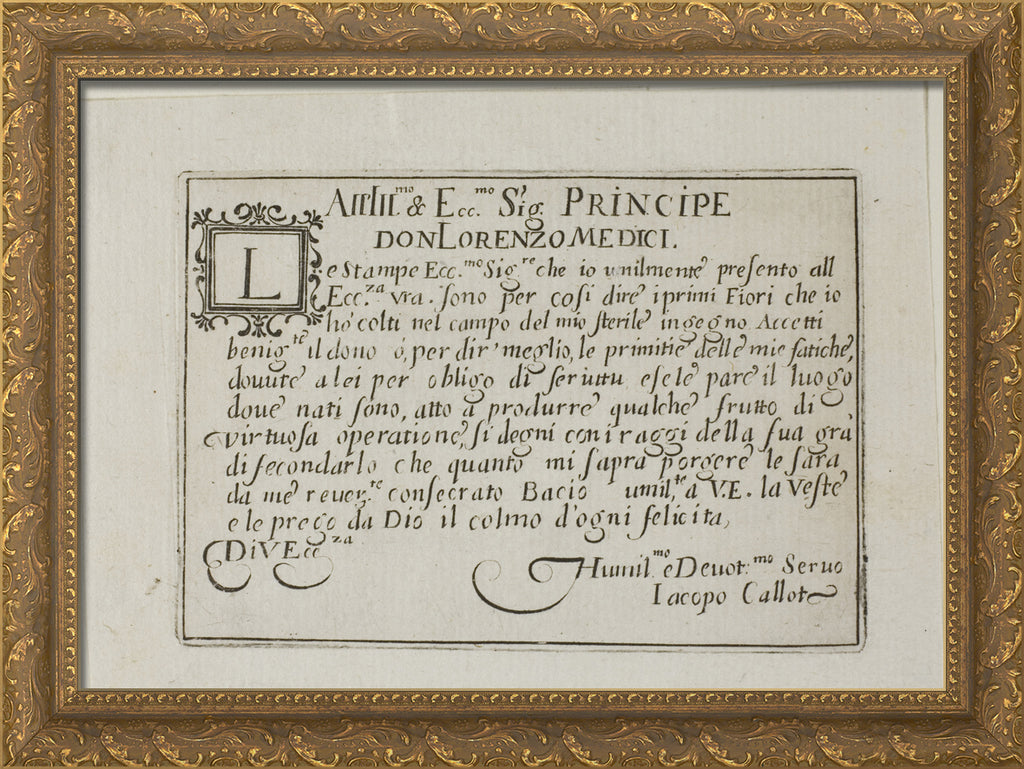 All Ill.mo & Ecc.mo Sig. PRINCIPE
DON LORENZO MEDICI.
L
e Stampe Ecc.mo Sig.re che io vmilmente presento all
Ecc.za vra. sono per cosi dire i primi Fiori che io
ho colti nel campo del mio sterile ingegno Accetti
benig.te il dono ó, per dir' meglio, le primitie delle mie fatiche,
douute a lei per obligo di seruitu e se le pare il luogo
doue nati sono, atto a produrre qualche frutto di
virtuosa operatione, si degni con i raggi della sua grà
di fecondarlo che quanto mi sapra porgere le sara
da me reuer.te consecrato Bacio umil.te a V.E. la Veste
e le prego da Dio il colmo d'ogni felicita,
Di V Ecc.za
Humil.mo e Deuot.mo Seruo
Iacopo Callot